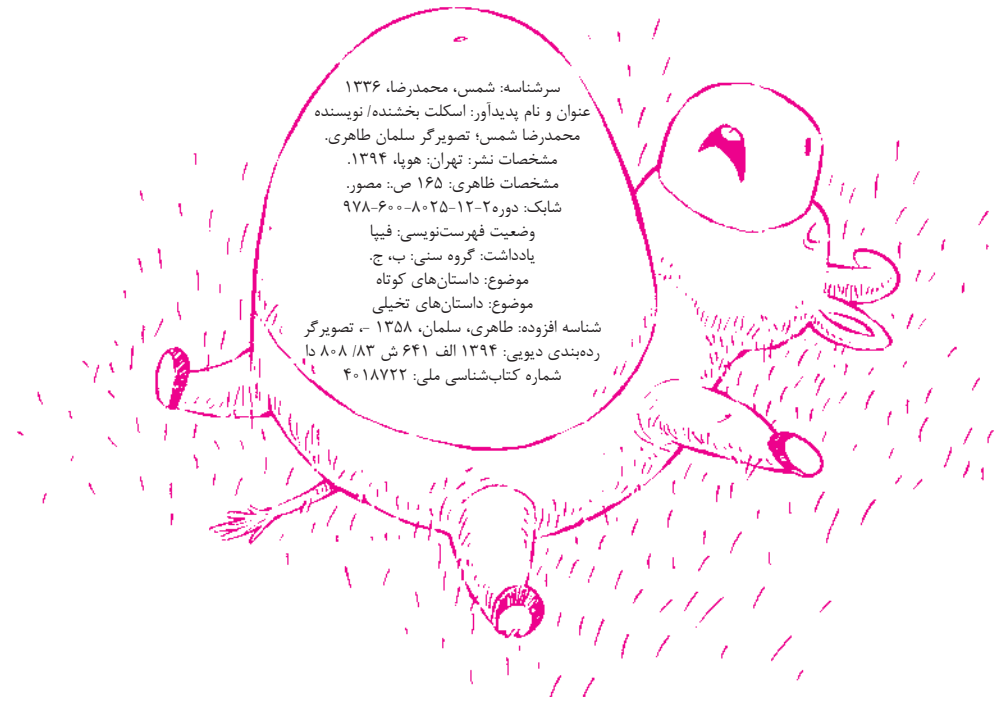 سرشناسه: شمس، محمدرضا، ۱۳۳۶
عنوان و نام پدیدآور: اسکلت بخشنده/ نویسنده
محمدرضا شمس؛ تصویرگر سلمان طاهری.
مشخصات نشر: تهران: هوپا، ۱۳۹۴.
مشخصات ظاهری: ۱۶۵ ص.: مصور.
شابک: دوره۲-۱۲-۸۰۲۵-۶۰۰-۹۷۸
وضعیت فهرست‌نویسی: فیپا
یادداشت: گروه سنی: ب، ج.
موضوع: داستان‌های کوتاه
موضوع: داستان‌های تخیلی
شناسه افزوده: طاهری، سلمان، ۱۳۵۸ -، تصویرگر
رده‌بندی دیویی: ۱۳۹۴ الف ۶۴۱ ش ۸۳/ ۸۰۸ دا
شماره کتاب‌شناسی ملی: ۴۰۱۸۷۲۲